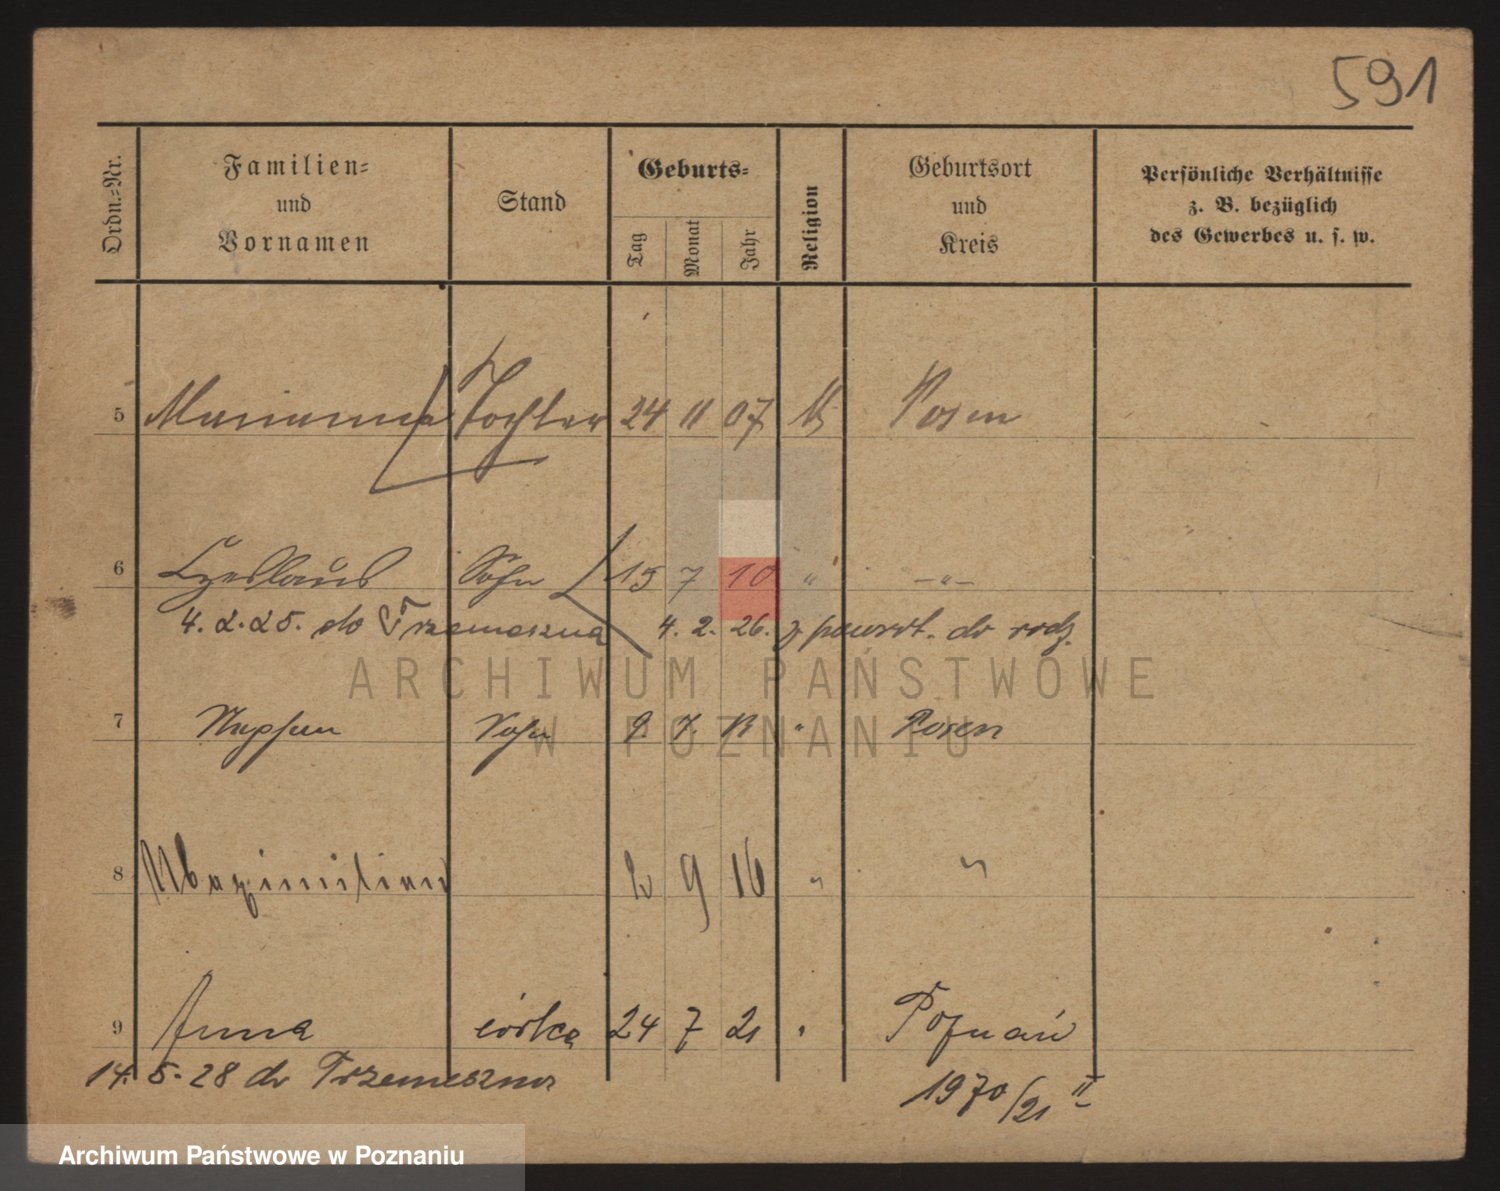 591
Ordn.-Nr.
Familien-
und
Vornamen
Stand
Geburts-
Tag
Monat
Jahr
Religion
Geburtsort
und
Kreis
Persönliche Verhältnisse
z. B. bezüglich
des Gewerbes u. s. w.
5 Marianna Tochter 24 11 07 Posen
6 Czeslaus Sohn 15 7 10 " —"—
4. 2. 25. do Trzemeszna 4. 2. 26. z powrt. do rodz.
ARCHIWUM PAŃSTWOWE
W POZNANIU
7 Sohn 9. 7. 13 " Posen
8 Maximilian 2 9 16 " "
9 Anna córka 24 7 21 " Poznań
14. 5. 28 do Trzemeszna
1970/21 II
Archiwum Państwowe w Poznaniu